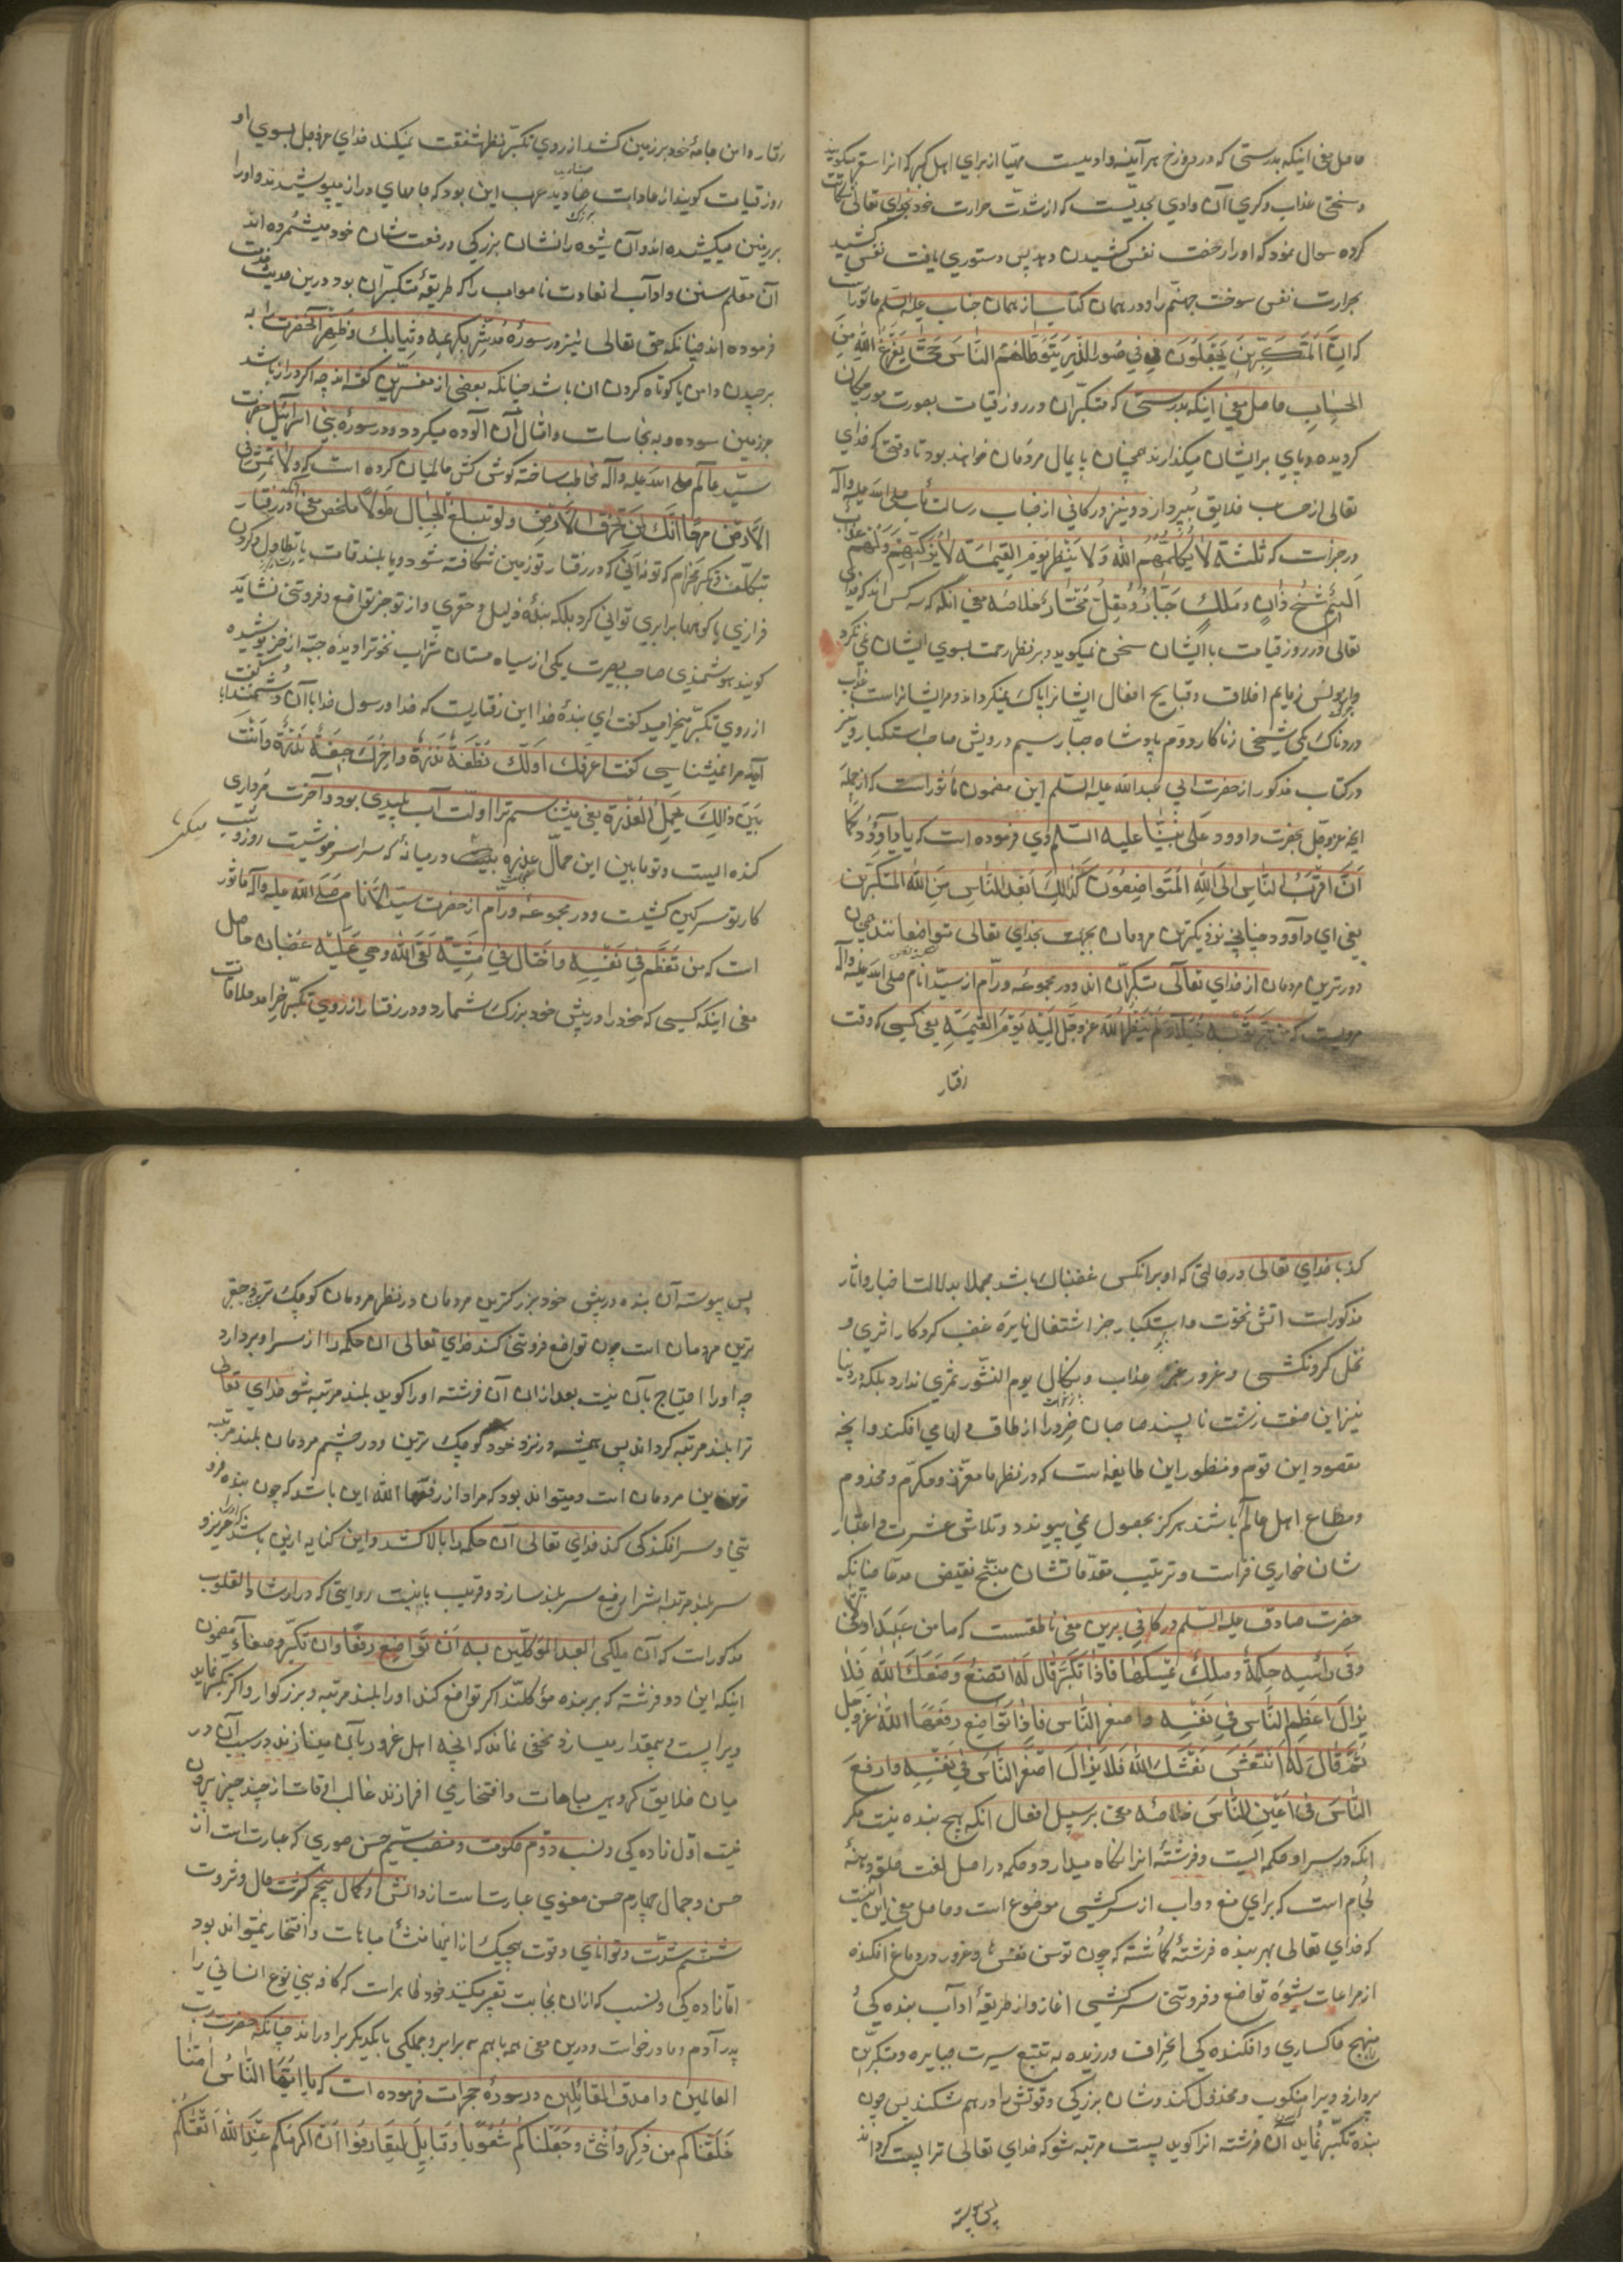 حاصل معنی اینکه بدرستی که در دوزخ هرآینه وادیست مهیا از برای اهل کبر که انرا سقر میکویند
و سختی عذاب و کرمی آن وادی بحدیست که از شدت حرارت خود بخدای تعالی شکایت
کرده سوال نمود که او را رخصت نفس کشیدن دهد پس دستوری یافت نفس کشید
بحرارت نفس سوخت جهنم را و در همان کتاب از همان جناب علیه السلم ماثور است
که ان المتکبرین یجعلون فی صور الذر یتوطاهم الناس حتی یفرغ الله من
الحساب حاصل معنی اینکه بدرستی که متکبران در روز قیامت بصورت مورچکان
کردیده و پای بر ایشان میکذارند همچنان پایمال مردمان خواهند بود تا وقتی که خدای
تعالی از حساب خلایق بپردازد و نیز در کافی از جناب رسالت ماب صلی الله علیه وآله
در خبرات که ثلثة لا یکلمهم الله ولا ینظر یوم القیمة لا یزکیهم ولهم عذاب
الیم شیخ زان و ملک جبار و مقل مختار خلاصه معنی انکه سه کس اند که خدای
تعالی در روز قیامت با ایشان سخن نمیکوید و بر نظر رحمت بسوی ایشان نمی نکرد
واز لوث ذمایم اخلاق و قبایح افعال ایشانرا پاک نمیکرداند و مر ایشانراست عذاب
دردناک یکی شیخی زناکار دوم پادشاه جبار سیم درویش صاحب استکبار و نیز
در کتاب مذکور از حضرت ابی عبدالله علیه السلم این مضمون ماثور است که از جمله
انچه عزوجل بحضرت داوود علی نبینا علیه السلم وحی فرموده است که یا داوود کما
ان اقرب الناس الی الله المتواضعون کذلک ابعد الناس من الله المتکبرین
یعنی ای داوود چنانچه نزدیکترین مردمان بجهت بخدای تعالی متواضعانند همچنین
دورترین مردمان از خدای تعالی متکبران اند و در مجموعه ورام از سید انام صلی الله علیه وآله
مرویست که من جر ثوبه خیلاء لم ینظر الله عزوجل الیه یوم القیمة یعنی کسی که وقت
رفتار
رفتار دامن جامهٔ خود بر زمین کشد از روی تکبر نظر شفقت نمیکند خدای عزوجل بسوی او
روز قیامت کویند از عادات صنادید عرب این بود که جامهای دراز میپوشیدند و او را
بر زمین میکشیده اند و آن شیوه را نشان بزرکی و رفعت شان خود میشمرده اند
آن معلم سنن و اداب از عادت ناصواب را که طریقهٔ متکبران بود درین حدیث مذمت
فرموده اند چنانکه حق تعالی نیز در سورهٔ مدثر بکریمه وثیابک فطهر آنحضرت را به
برچیدن دامن یا کوتاه کردن ان باشد چنانکه بعضی از مفسرین کفته اند چه اکر دراز باشد
بر زمین سوده و به نجاسات و امثال آن الوده میکردد و در سورهٔ بنی اسرائیل حضرت
سید عالم صلی الله علیه وآله مخاطب ساخته کوش کش عالمیان کرده است که ولا تمش فی
الارض مرحا انک لن تخرق الارض ولن تبلغ الجبال طولا ملخص معنی انکه در رفتار
تبکلف و تکبر مخرام که تو نه آنی که در رفتار تو زمین شکافته شود و یا بلند قامت یا تطاول و کردن
فرازی با کوهها برابری توانی کرد بلکه بندهٔ ذلیل و حقیری و از تو جز تواضع و فروتنی نشاید
کویند هوشمندی صاحب بصیرت یکی از سیاه مستان شراب نخوترا دید جبه از خز پوشیده
از روی تکبر میخرامید کفت ای بندهٔ خدا این رفتاریست که خدا و رسول خدا با آن دشمنند
آیا مرا نمیشناسی کفت اعرفک اولک نطفة مذرة واخرک جیفة قذرة وانت
بین ذالک تحمل العذرة یعنی میشناسم ترا اولت آب پلیدی بود و آخرت مرداری
کنده ایست و تو مابین این حمال عذره در میانهٔ که سراسر خوشیت روز و شب
کار تو سرکین کشیست و در مجموعه ورام از حضرت سید الانام صلی الله علیه وآله ماثور
است که من تعظم فی نفسه واختال فی مشیته لقی الله وهو علیه غضبان حاصل
معنی اینکه کسی که خود را در پیش خود بزرک شمارد و در رفتار از روی تکبر خرامد ملاقات
میکند
کند با خدای تعالی در حالتی که او برانکس غضبناک باشد مجملا بدلالت اخبار و اثار
مذکورات اتش نخوت و استکبار جز اشتعال نایرهٔ غضب کردکار اثری و
نخل کردنکشی و غرور غیر عذاب و نکال یوم النشور ثمری ندارد بلکه در دنیا
نیز این صفت زشت ناپسند صاحبان خود را از طاق دلها می افکند و انچه
مقصود این قوم و منظور این طایفه است که در نظرها معزز و مکرم و مخدوم
و مطاع اهل عالم باشند هرکز بحصول نمی پیوندد و تلاش عشرت و اعتبار
شان خواری فزاست و ترتیب مقدماتشان منتج نقیض مدعا چنانکه
حضرت صادق علیه السلم در کافی برین معنی ناطقست که ما من عبد الا
وفی راسه حکمة وملک یمسکها فاذا تکبر قال له اتضع وضعک الله فلا
یزال اعظم الناس فی نفسه واصغر الناس فاذا تواضع رفعها الله عزوجل
ثم قال له انتعش نعشک الله فلا یزال اصغر الناس فی نفسه وارفع
الناس فی اعین الناس خلاصه معنی برسبیل اجمال انکه هیچ بنده نیست مکر
انکه در سر او حکمه ایست و فرشتهٔ انرا نکاه میدارد و حکمه در اصل لغت حلقه دهنهٔ
لجام است که برای منع دواب از سرکشی موضوع است و حاصل معنی این است
که خدای تعالی بهر بنده فرشتهٔ کماشته که چون توسن نفس باد غرور در دماغ افکنده
از مراعات شیوهٔ تواضع و فروتنی سرکشی اغاز و از طریقهٔ آداب بنده کی و
منهج خاکساری و افکنده کی انحراف ورزیده به تتبع سیرت جبابره و متکبرین
پردازد ویرا منکوب و مخذول کند و شان بزرکی و قوتش را درهم شکند پس چون
بنده تکبر نماید آن فرشته انرا کوید پست مرتبه شو که خدای تعالی ترا پست کرداند
پس پیوسته
پس پیوسته آن بنده در پیش خود بزرکترین مردمان و در نظر مردمان کوچک ترین و حقیر
ترین مردمان است چون تواضع و فروتنی کند خدای تعالی ان حکمه را از سر او بردارد
چه او را احتیاج بآن نیست بعد از ان آن فرشته او را کوید بلند مرتبه شو خدای تعالی
ترا بلند مرتبه کرداند پس همیشه در نزد خود کوچک ترین و در چشم مردمان بلند مرتبه
ترین مردمان است و میتواند بود که مراد از رفعها الله این باشد که چون بنده فرو
تنی و سر افکندکی کند خدای تعالی آن حکمه را بالا کشد و این کنایه از این باشد که او را عزیز و
سربلند مرتبه اش را رفیع سربلند سازد و قریب باینست روایتی که در ارشاد القلوب
مذکورات که آن ملکی العبد الموکلین به ان تواضع رفعا وان تکبر وضعاه مضمون
اینکه این دو فرشته که بر بنده موکلند اکر تواضع کند او را بلند مرتبه و بزرکوار و اکر تکبر نماید
ویرا پست و بیمقدار میسازد و مخفی نماند که انچه اهل غرور بآن مینازند و بسبب آن در
میان خلایق کردن مباهات و افتخاری افرازند غالب اوقات از چند چیز بیرون
نیست اول زاده کی و نسب دوم حکومت و منصب سیم حسن صوری که عبارت است از
حسن و جمال چهارم حسن معنوی عبارتست از دانش و کمال پنجم کثرت مال و ثروت
ششم شدت و توانای و قوت هیچیک از اینها منشأ مباهات و افتخار نمیتواند بود
اما زاده کی و نسب که از ان بنجابت تعبیر میکنند خود ظاهراست که کافهٔ بنی نوع انسانی را
پدر آدم و مادر حواست و درین معنی همه با هم برابر و جملکی با یکدیکر برادراند چنانکه حضرت رب
العالمین و اصدق القائلین در سورهٔ حجرات فرموده است که یا ایها الناس انا
خلقناکم من ذکر وانثی وجعلناکم شعوبا وقبایل لتعارفوا ان اکرمکم عند الله اتقیکم